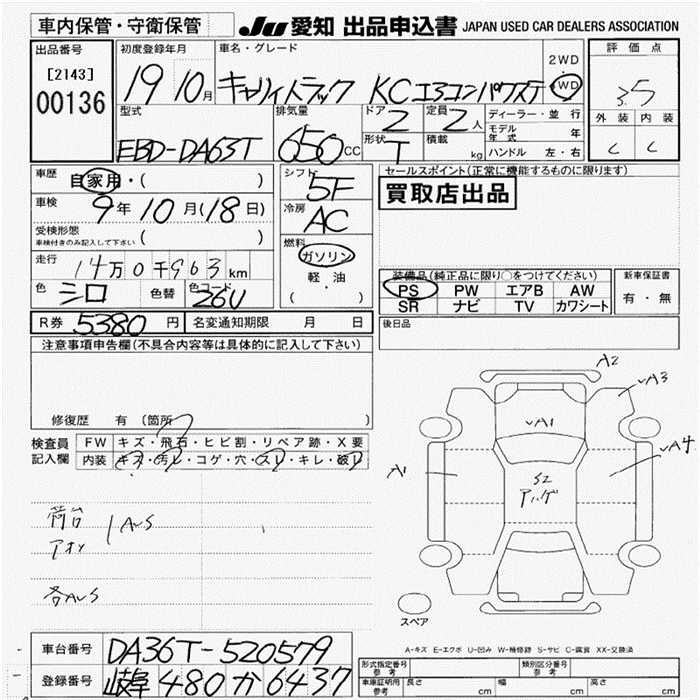 車内保管・守衛保管
JU 愛知 出品申込書 JAPAN USED CAR DEALERS ASSOCIATION
出品番号 [2143] 00136
初度登録年月 19 10月
車名・グレード キャリイトラック KCエアコンパワステ
2WD 4WD
評価点 3.5
外装 内装
C C
型式 EBD-DA63T
排気量 650cc
ドア 2
形状 T
定員 2人
積載 kg
ディーラー・並行
モデル年式 年
ハンドル 左・右
車歴 自家用・( )
車検 9年10月(18日)
受検形態 車検付きのみ記入して下さい ( )
走行 14万0千963km
色 シロ 色替 色コード 26U
シフト 5F
冷房 AC
燃料 ガソリン 軽・油 ( )
セールスポイント(正常に機能するものに限ります)
買取店出品
装備品(純正品に限り○をつけてください)
PS PW エアB AW
SR ナビ TV カワシート
新車保証書 有・無
後日品
R券 5380円 名変通知期限 月 日
注意事項申告欄(不具合内容等は具体的に記入して下さい)
修復歴 有 (箇所 )
検査員記入欄
FW キズ・飛石・ヒビ割・リペア跡・X要
内装 キズ・汚レ・コゲ・穴・スレ・キレ・破レ
荷台
アオリ
AS
各AS
A2
A3
A1
A4
A1
S2
スペア
A-キズ E-エクボ U-凹み W-補修跡 S-サビ C-腐食 XX-交換済
車台番号 DA36T-520579
登録番号 岐阜 480 か 6437
形式指定番号 参考
類別区分番号 参考
車庫証明用 参考 長さ cm 幅 cm 高さ cm